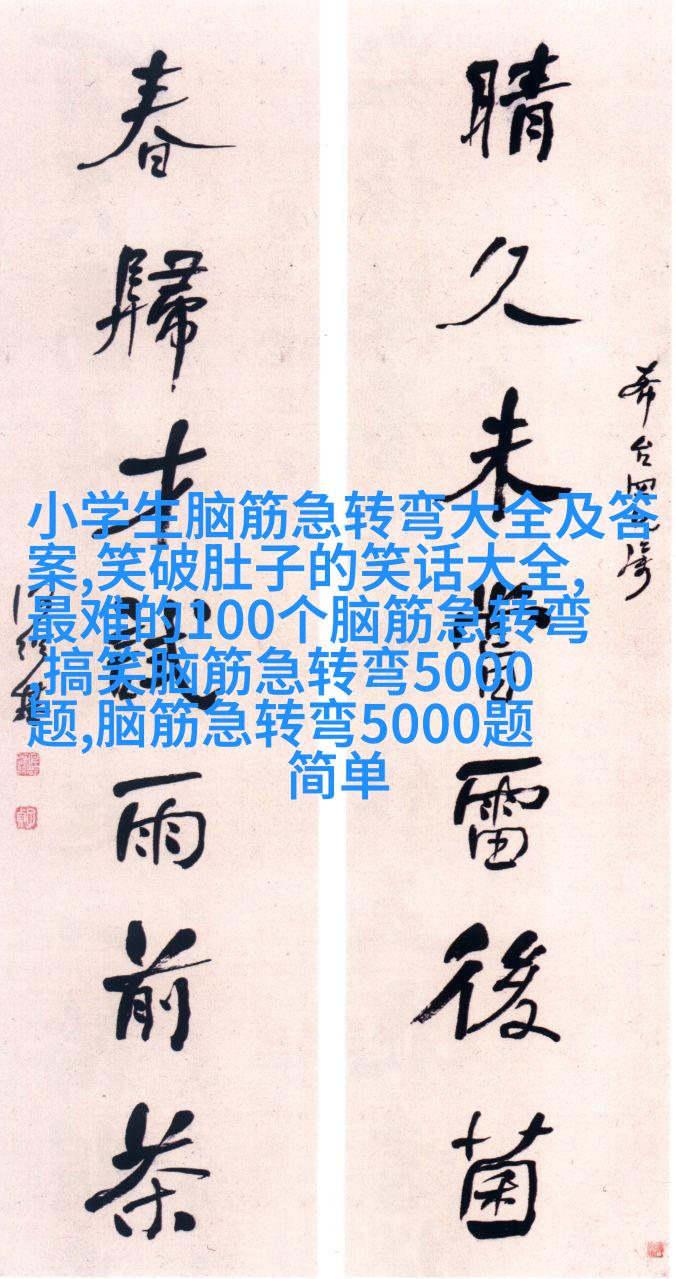 晴久未嘗雷後菌
春歸才雨前茶
小学生脑筋急转弯大全及答
案,笑破肚子的笑话大全,
最难的100个脑筋急转弯
,搞笑脑筋急转弯5000
题,脑筋急转弯5000题
简单